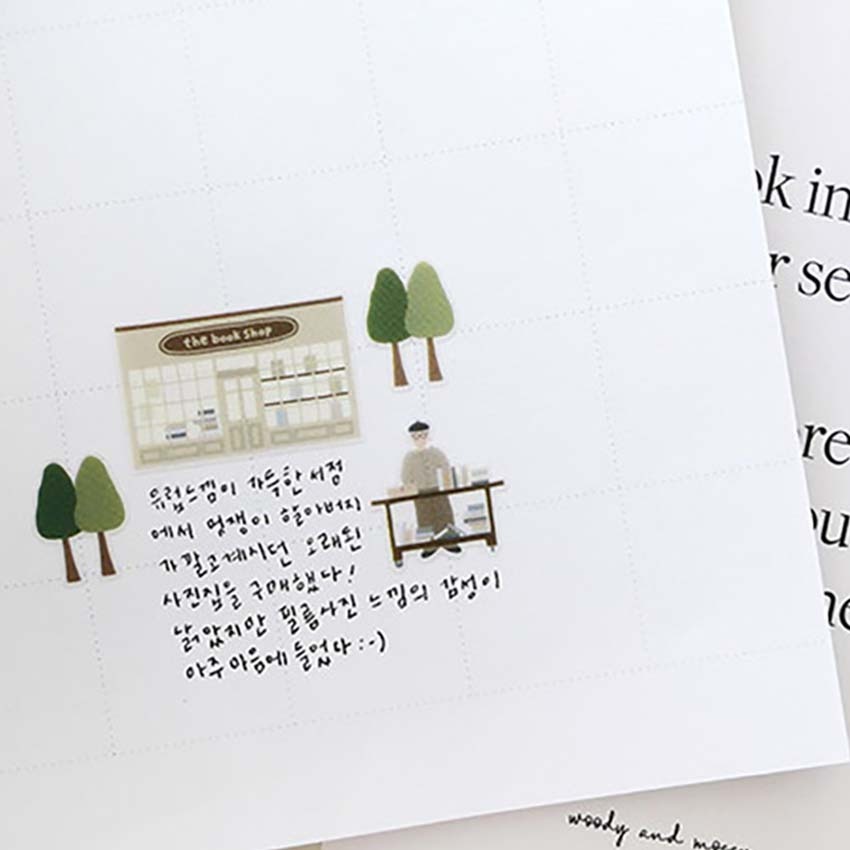 the book shop
유럽느낌이 가득한 서점
에서 멋쟁이 할아버지
가 팔고계시던 오래된
사진집을 구매했다!
낡았지만 필름사진 느낌의 감성이
아주 마음에 들었다 :-)
in
r se
woody and